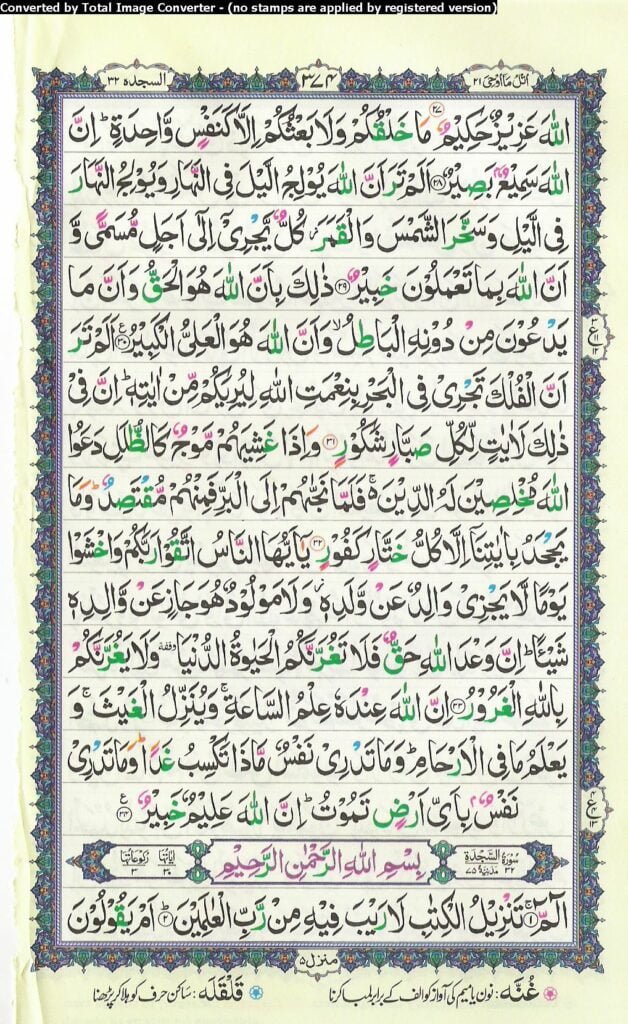 Converted by Total Image Converter - (no stamps are applied by registered version)
السجدة ٣٢
٣٧٤
اتل ما اوحی ٢١
اللّٰهَ عَزِیْزٌ حَكِیْمٌ ٢٧ مَا خَلْقُكُمْ وَلَا بَعْثُكُمْ اِلَّا كَنَفْسٍ وَّاحِدَةٍ ؕ اِنَّ
اللّٰهَ سَمِیْعٌۢ بَصِیْرٌ ٢٨ اَلَمْ تَرَ اَنَّ اللّٰهَ یُوْلِجُ الَّیْلَ فِی النَّهَارِ وَیُوْلِجُ النَّهَارَ
فِی الَّیْلِ وَسَخَّرَ الشَّمْسَ وَالْقَمَرَ ؗ كُلٌّ یَّجْرِیْۤ اِلٰۤی اَجَلٍ مُّسَمًّی وَّ
اَنَّ اللّٰهَ بِمَا تَعْمَلُوْنَ خَبِیْرٌ ٢٩ ذٰلِكَ بِاَنَّ اللّٰهَ هُوَ الْحَقُّ وَاَنَّ مَا
یَدْعُوْنَ مِنْ دُوْنِهِ الْبَاطِلُ ۙ وَاَنَّ اللّٰهَ هُوَ الْعَلِیُّ الْكَبِیْرُ ٣٠ ع اَلَمْ تَرَ
اَنَّ الْفُلْكَ تَجْرِیْ فِی الْبَحْرِ بِنِعْمَتِ اللّٰهِ لِیُرِیَكُمْ مِّنْ اٰیٰتِهٖ ؕ اِنَّ فِیْ
ذٰلِكَ لَاٰیٰتٍ لِّكُلِّ صَبَّارٍ شَكُوْرٍ ٣١ وَاِذَا غَشِیَهُمْ مَّوْجٌ كَالظُّلَلِ دَعَوُا
اللّٰهَ مُخْلِصِیْنَ لَهُ الدِّیْنَ ۚ۬ فَلَمَّا نَجّٰىهُمْ اِلَی الْبَرِّ فَمِنْهُمْ مُّقْتَصِدٌ ؕ وَمَا
یَجْحَدُ بِاٰیٰتِنَاۤ اِلَّا كُلُّ خَتَّارٍ كَفُوْرٍ ٣٢ یٰۤاَیُّهَا النَّاسُ اتَّقُوْا رَبَّكُمْ وَاخْشَوْا
یَوْمًا لَّا یَجْزِیْ وَالِدٌ عَنْ وَّلَدِهٖ ؗ وَلَا مَوْلُوْدٌ هُوَ جَازٍ عَنْ وَّالِدِهٖ
شَیْـًٔا ؕ اِنَّ وَعْدَ اللّٰهِ حَقٌّ فَلَا تَغُرَّنَّكُمُ الْحَیٰوةُ الدُّنْیَا وقفة وَلَا یَغُرَّنَّكُمْ
بِاللّٰهِ الْغَرُوْرُ ٣٣ اِنَّ اللّٰهَ عِنْدَهٗ عِلْمُ السَّاعَةِ ۚ وَیُنَزِّلُ الْغَیْثَ ۚ وَ
یَعْلَمُ مَا فِی الْاَرْحَامِ ؕ وَمَا تَدْرِیْ نَفْسٌ مَّاذَا تَكْسِبُ غَدًا ؕ وَمَا تَدْرِیْ
نَفْسٌۢ بِاَیِّ اَرْضٍ تَمُوْتُ ؕ اِنَّ اللّٰهَ عَلِیْمٌ خَبِیْرٌ ٣٤ ع
سُوْرَةُ السَّجْدَةِ ٣٢ مَكِّیَّةٌ ٧٥
بِسْمِ اللّٰهِ الرَّحْمٰنِ الرَّحِیْمِ
اٰیَاتُهَا ٣٠ رُكُوْعَاتُهَا ٣
الٓمّٓ ۚ ١ تَنْزِیْلُ الْكِتٰبِ لَا رَیْبَ فِیْهِ مِنْ رَّبِّ الْعٰلَمِیْنَ ؕ ٢ اَمْ یَقُوْلُوْنَ
منزل ۵
غُنَّه: نون یا میم کی آواز کو الف کے برابر لمبا کرنا
قَلْقَلَه: ساکن حرف کو ہلا کر پڑھنا